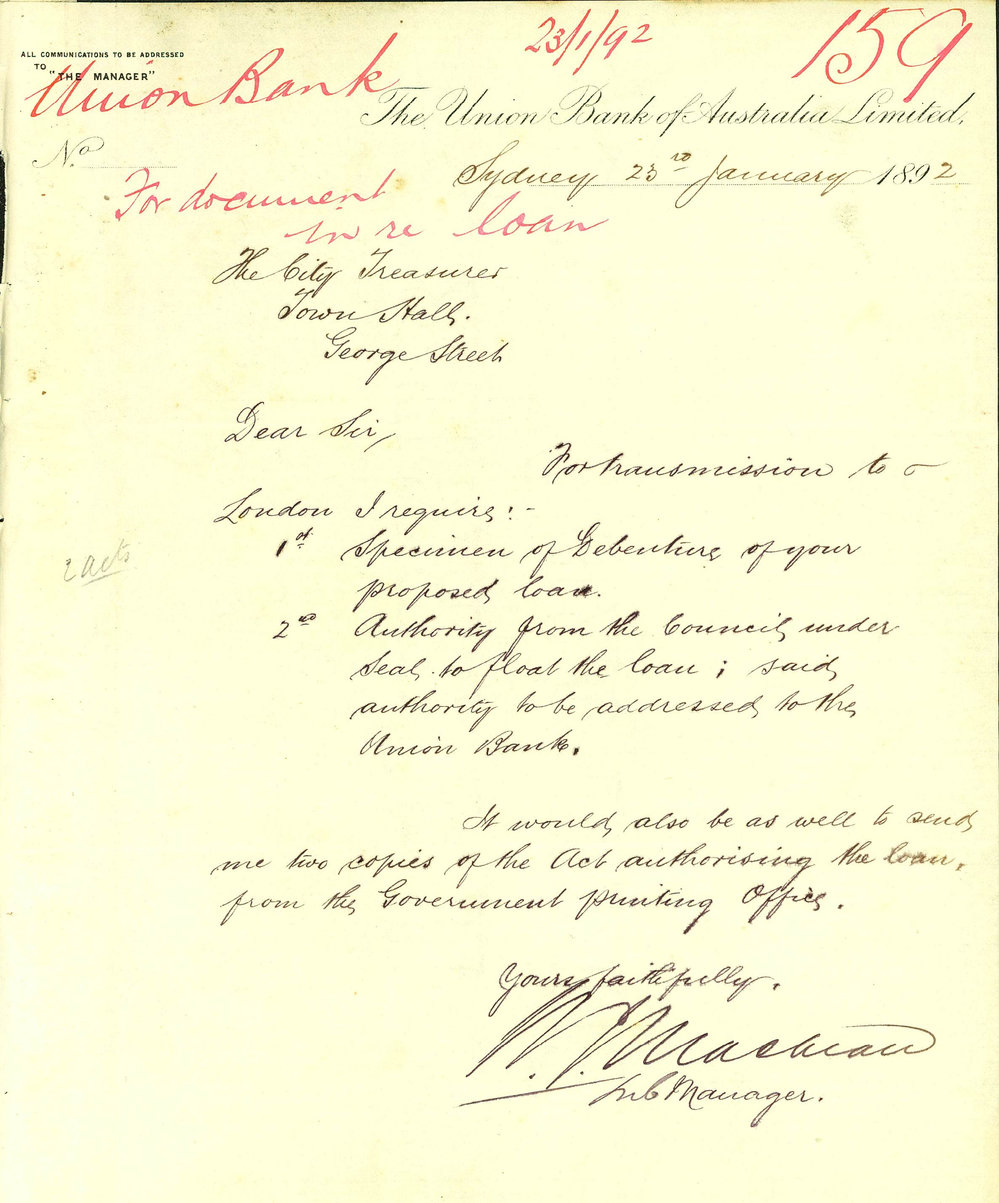 23/1/92
159
ALL COMMUNICATIONS TO BE ADDRESSED
TO "THE MANAGER"
Union Bank
The Union Bank of Australia Limited.
No.
Sydney 23rd January 1892
For document
in re loan
The City Treasurer
Town Hall.
George Street
Dear Sir,
For transmission to
London I require:-
1st Specimen of Debenture of your
proposed loan.
2 acts
2nd Authority from the Council under
Seal to float the loan; said
authority to be addressed to the
Union Bank.
It would also be as well to send
me two copies of the Act authorising the loan.
from the Government printing Office.
Yours faithfully.
Sub Manager.